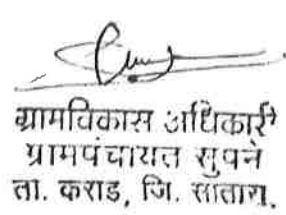 ग्रामविकास अधिकारी
ग्रामपंचायत सुपने
ता. कराड, जि. सातारा.